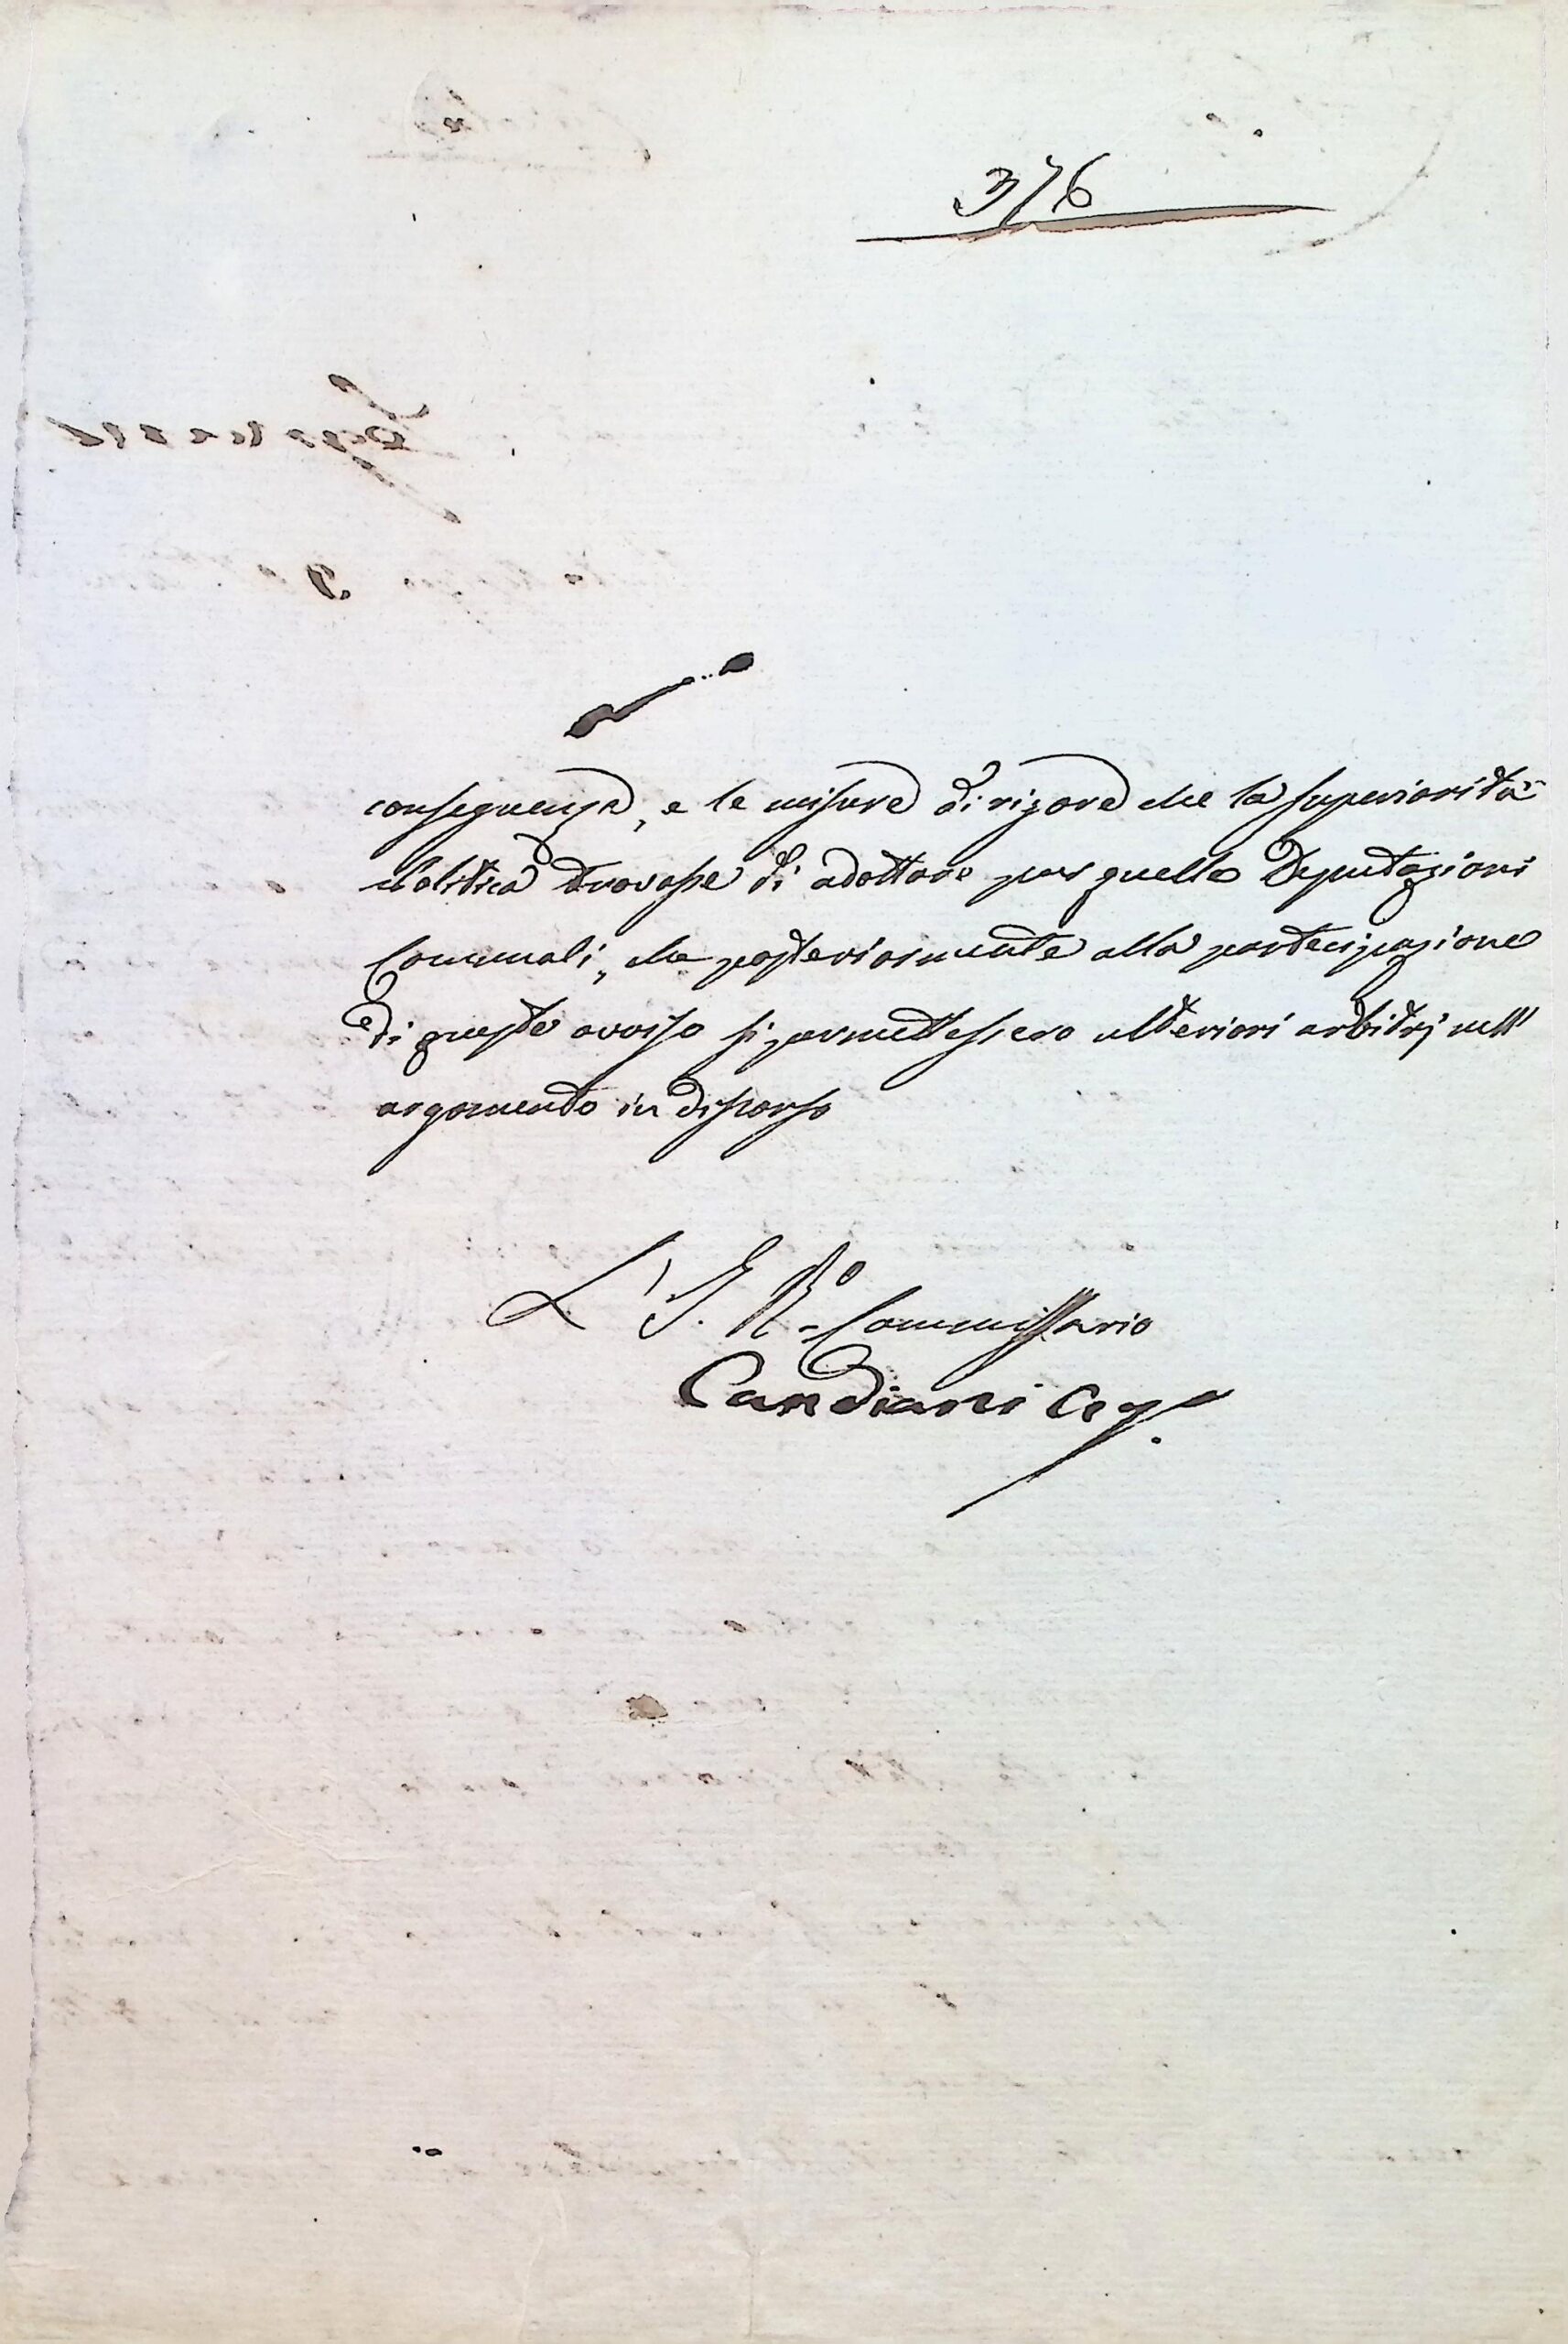 376
conseguenza, e le misure di rigore che la superiorità
Politica trovasse di adottare per quelle Deputazioni
Comunali, che posteriormente alla partecipazione
di queste avviso si permettessero ulteriori arbitrj nell'
argomento in discorso
L'I. R.º Commissario
Candiani